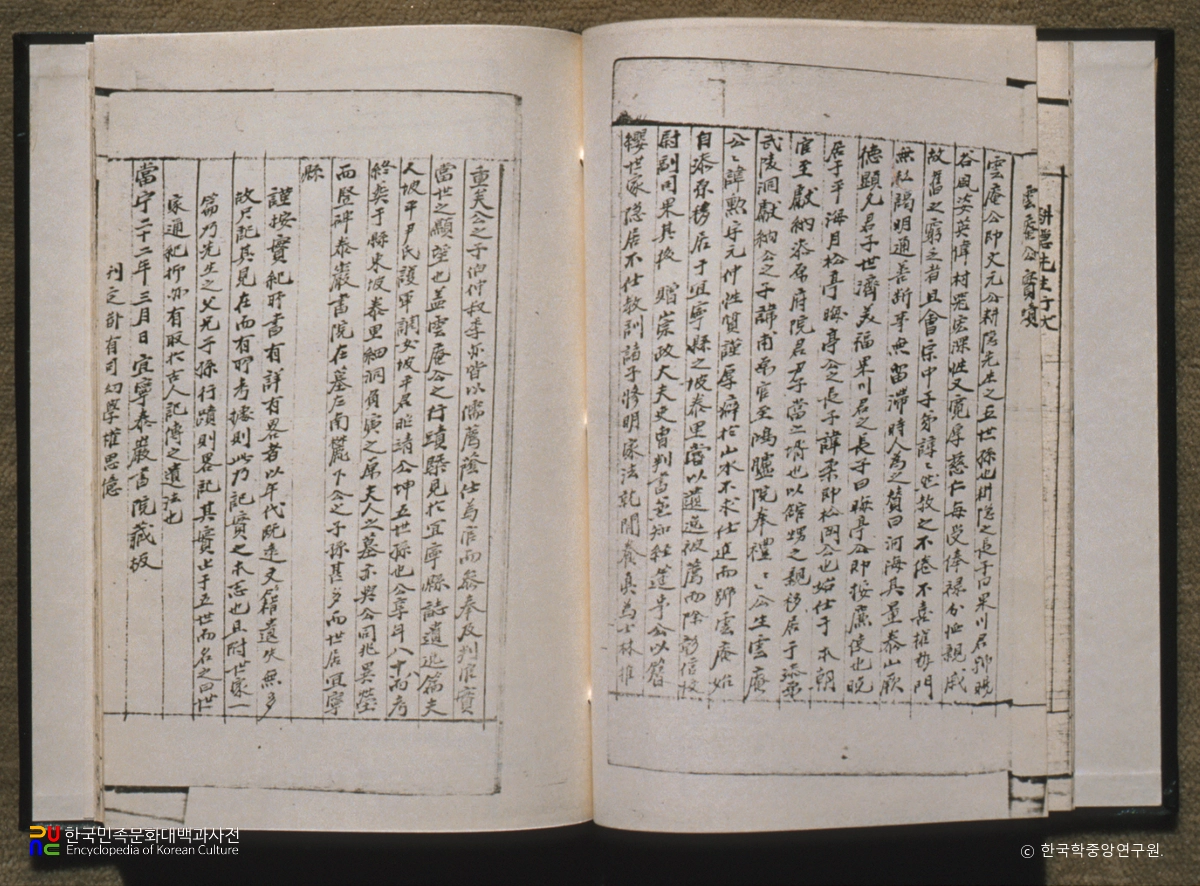 耕隱先生行
雲庵公實
雲庵公卽文元公耕隱先生之五世孫也耕隱之長子曰果川君卽晩
谷風姿英偉材器宏深性又寬厚慈仁每受俸祿分恤親戚
故舊之窮乏者且會宗中子弟諄〻然敎之不倦不喜權勢門
無私謁明道善斷案無留滯時人爲之贊曰河海其量泰山厥
德顯允君子世濟美福果川君之長子曰晦亭公卽按廉使也晩
居于平海月松亭晦亭公之長子諱柔卽松岡公也始仕于本朝
官至獻納漆原府院君尹子當之壻也以館甥之親移居于漆原
武陵洞獻納公之子諱甫原官至鴻臚院奉禮〻公生雲庵
公〻諱勲字元仲性質謹厚癖於山水不求仕進而歸雲庵始
自漆原移居于宜寧縣之坡泰里
尉副司果其後贈崇政大夫吏曹判書兼知經筵事公以簪
纓世家隱居不仕敎訓諸子修明家法乾閒養眞爲士林推
重矣公之子伯仲叔季亦皆以儒薦蔭仕爲官而參奉及判官實
當世之顯望也蓋雲庵公之行蹟縣見於宜寧縣誌遺逸篇夫
人坡平尹氏護軍調女坡平君昭靖公坤五世孫也公享年八十而考
終葬于縣東坡泰里細洞負寅之原夫人之墓亦與公同兆異塋
而竪碑泰巖書院在墓左南麓下公之子孫甚多而世居宜寧
縣
謹按實紀所書有詳有畧者以年代旣遠文籍遺失無多
故只記其見在而有所考據則此乃記實之本志也且附世家一
篇乃先生之父兄子孫行蹟則畧記其實止于五世而名之曰世
家通紀抑亦有取於古人記傳之遺法也
當宁二十二年三月日宜寧泰巖書院藏板
刊定都有司幼學權思憶
한국민족문화대백과사전
Encyclopedia of Korean Culture
ⓒ 한국학중앙연구원.